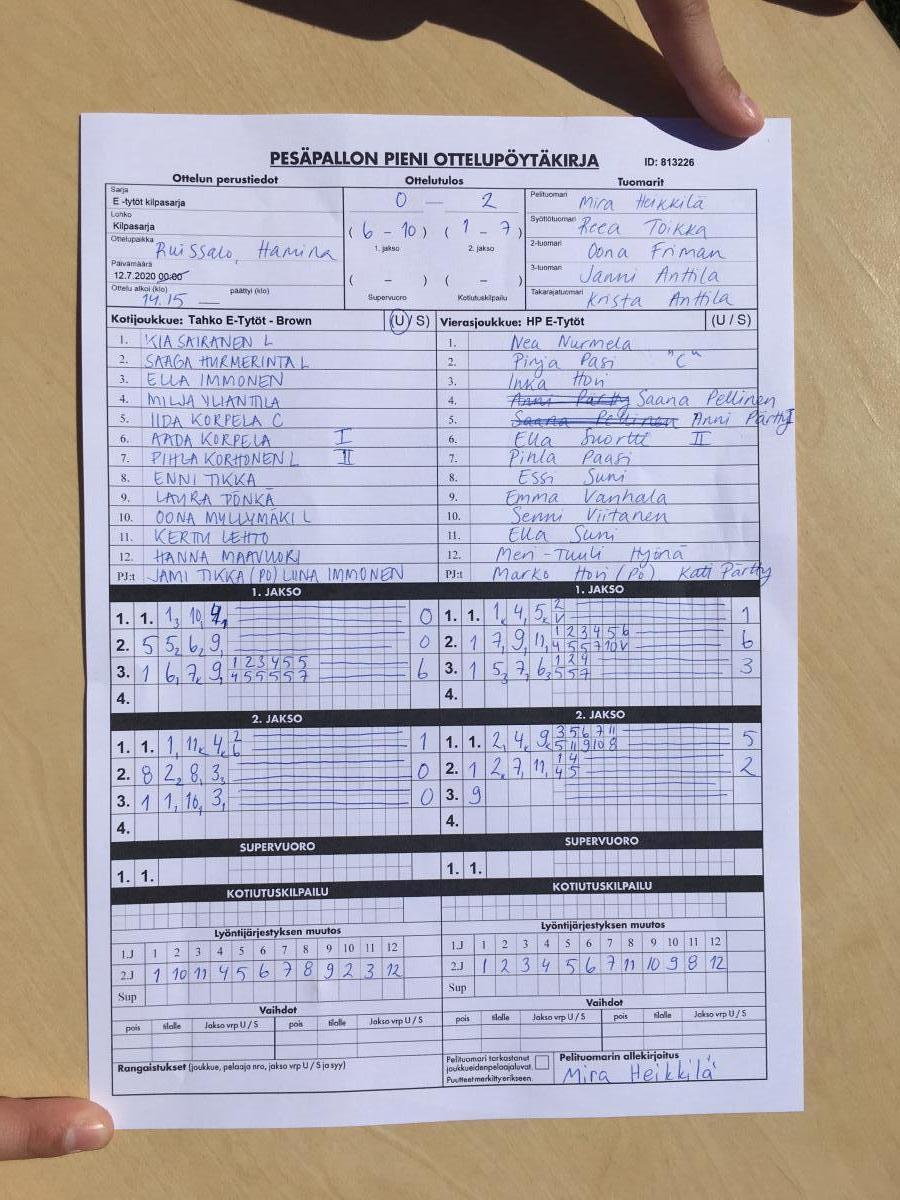 PESÄPALLON PIENI OTTELUPÖYTÄKIRJA ID: 813226
Ottelun perustiedot Ottelutulos Tuomarit
Sarja
E -tytöt kilpasarja
Lohko
Kilpasarja
Ottelupaikka Ruissalo, Hamina
Päivämäärä
12.7.2020 00:00
Ottelu alkoi (klo) 14.15 päättyi (klo)
0 — 2
( 6 - 10 ) ( 1 - 7 )
1. jakso 2. jakso
( - ) ( - )
Supervuoro Kotiutuskilpailu
Pelituomari Mira Heikkilä
Syöttötuomari Reea Toikka
2-tuomari Oona Friman
3-tuomari Janni Anttila
Takarajatuomari Krista Anttila
Kotijoukkue: Tahko E-Tytöt - Brown (U / S)
1. KIA SAIRANEN L
2. SAAGA HURMERINTA L
3. ELLA IMMONEN
4. MILJA YLIANTTILA
5. IIDA KORPELA C
6. AADA KORPELA I
7. PIHLA KORHONEN L II
8. ENNI TIKKA
9. LAURA PÖNKÄ
10. OONA MYLLYMÄKI L
11. KERTTU LEHTO
12. HANNA MAAVUORI
PJ:t JAMI TIKKA (PO) LIINA IMMONEN
Vierasjoukkue: HP E-Tytöt (U / S)
1. Nea Nurmela
2. Pinja Pasi "C"
3. Inka Hovi
4. Anni Pärtty Saana Pellinen
5. Saana Pellinen Anni Pärtty I
6. Ella Suortti II
7. Pihla Paasi
8. Essi Suni
9. Emma Vanhala
10. Senni Viitanen
11. Ella Suni
12. Meri-Tuuli Hyönä
PJ:t Marko Hovi (PO) Kati Pärtty
1. JAKSO
1. 1. 1, 10, 4, 0
2. 5 5, 6, 9, 0
3. 1 6, 7, 9, 1 2 3 4 5 5 6
4 5 5 5 5 7
4.
1. JAKSO
1. 1. 1, 4, 5, 2 1
V
2. 1 7, 9, 11, 1 2 3 4 5 6 6
4 5 5 7 10 V
3. 1 5, 7, 6, 1 2 4 3
5 5 7
4.
2. JAKSO
1. 1. 1, 11, 4, 2 1
6
2. 8 2, 8, 3, 0
3. 1 1, 10, 3, 0
4.
2. JAKSO
1. 1. 2, 4, 9, 3 5 6 7 11 5
5 11 9 10 8
2. 1 2, 7, 11, 1 4 2
4 5
3. 9
4.
SUPERVUORO SUPERVUORO
1. 1. 1. 1.
KOTIUTUSKILPAILU KOTIUTUSKILPAILU
Lyöntijärjestyksen muutos
1.J 1 2 3 4 5 6 7 8 9 10 11 12
2.J 1 10 11 4 5 6 7 8 9 2 3 12
Sup
Lyöntijärjestyksen muutos
1.J 1 2 3 4 5 6 7 8 9 10 11 12
2.J 1 2 3 4 5 6 7 11 10 9 8 12
Sup
Vaihdot Vaihdot
pois tilalle Jakso vrp U / S pois tilalle Jakso vrp U / S
pois tilalle Jakso vrp U / S pois tilalle Jakso vrp U / S
Rangaistukset (joukkue, pelaaja nro, jakso vrp U / S ja syy)
Pelituomari tarkastanut
joukkueiden pelaajaluvat.
Puutteet merkitty erikseen.
Pelituomarin allekirjoitus
Mira Heikkilä